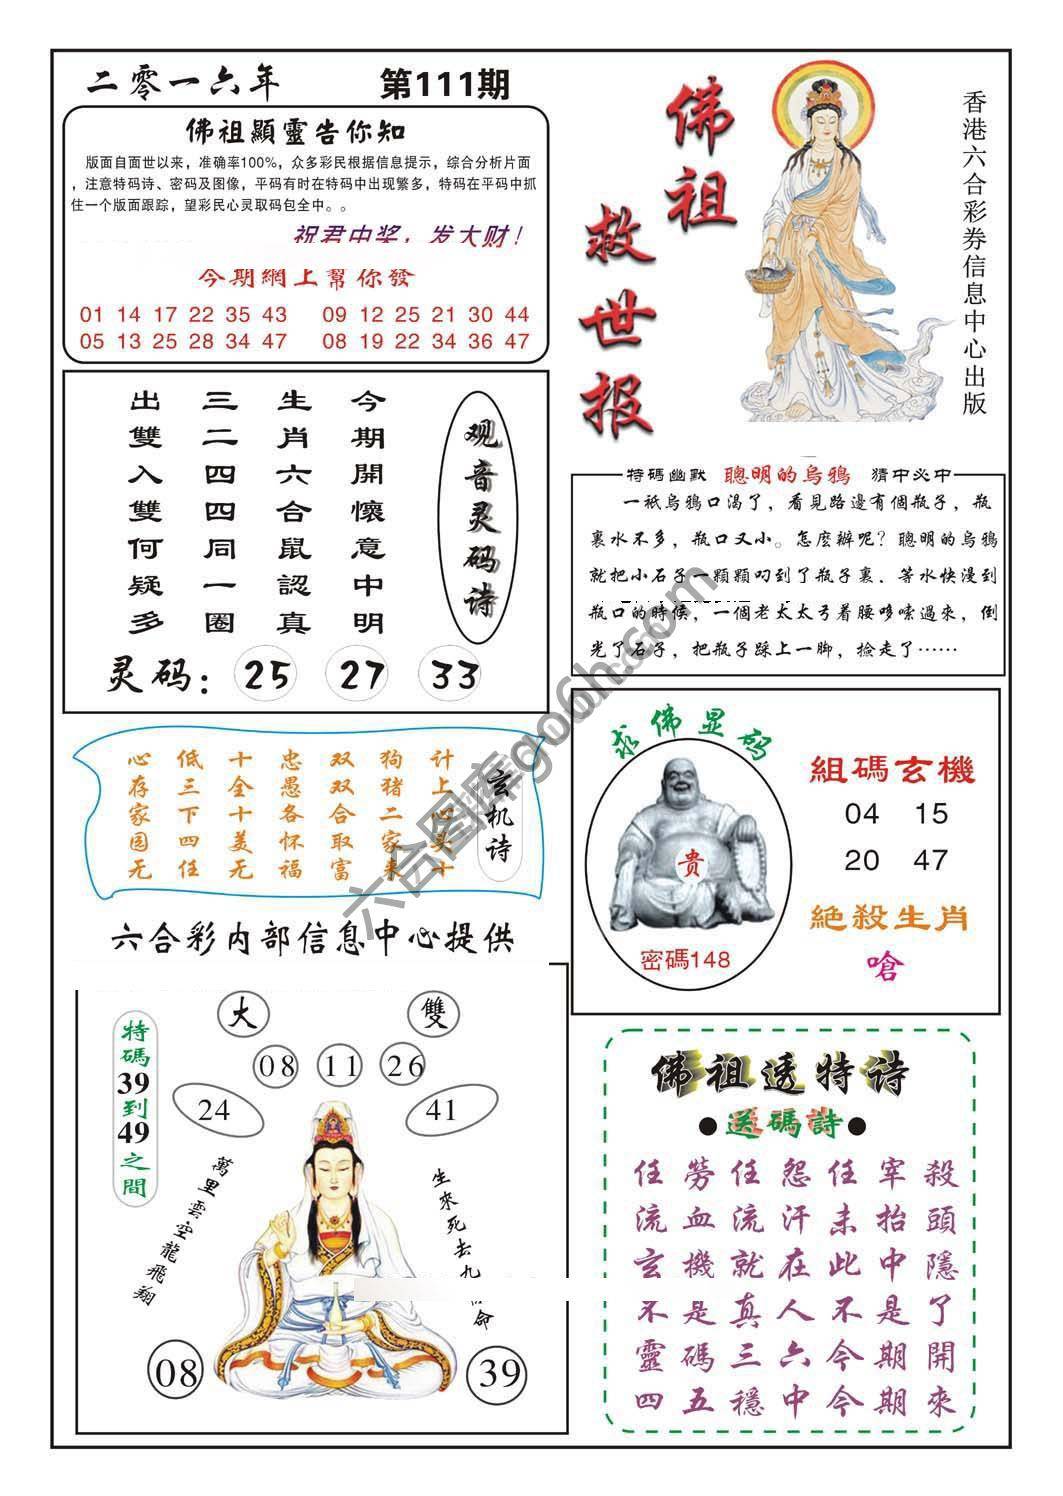 二零一六年 第111期
佛祖顯靈告你知
版面自面世以来，准确率100%，众多彩民根据信息提示，综合分析片面
，注意特码诗、密码及图像，平码有时在特码中出现繁多，特码在平码中抓
住一个版面跟踪，望彩民心灵取码包全中。。
祝君中奖，发大财！
今期網上幫你發
01 14 17 22 35 43 09 12 25 21 30 44
05 13 25 28 34 47 08 19 22 34 36 47
佛祖
救世报
香港六合彩券信息中心出版
观音灵码诗
今期開懷意中明
生肖六合鼠認真
三二四四同一圈
出雙入雙何疑多
灵码： 25 27 33
特碼幽默 聰明的烏鴉 猜中必中
一衹烏鴉口渴了，看見路邊有個瓶子，瓶
裏水不多，瓶口又小。怎麼辦呢？聰明的烏鴉
就把小石子一顆顆叼到了瓶子裏．等水快漫到
瓶口的時候，一個老太太弓着腰哆嗦過來，倒
光了石子，把瓶子踩上一脚，撿走了……
玄机诗
计上心头十
狗猪二家来
双双合取富
忠愚各怀福
十全十美无
低三下四任
心存家园无
求佛显码
贵
密碼148
組碼玄機
04 15
20 47
絶殺生肖
嗆
六合彩内部信息中心提供
大 雙
08 11 26
24 41
特碼39到49之間
萬里雲空龍飛翔
生來死去九命
08 39
佛祖透特诗
●送碼詩●
任勞任怨任宰殺
流血流汗未抬頭
玄機就在此中隱
不是真人不是了
靈碼三六今期開
四五穩中今期來
六合图库go6h.com